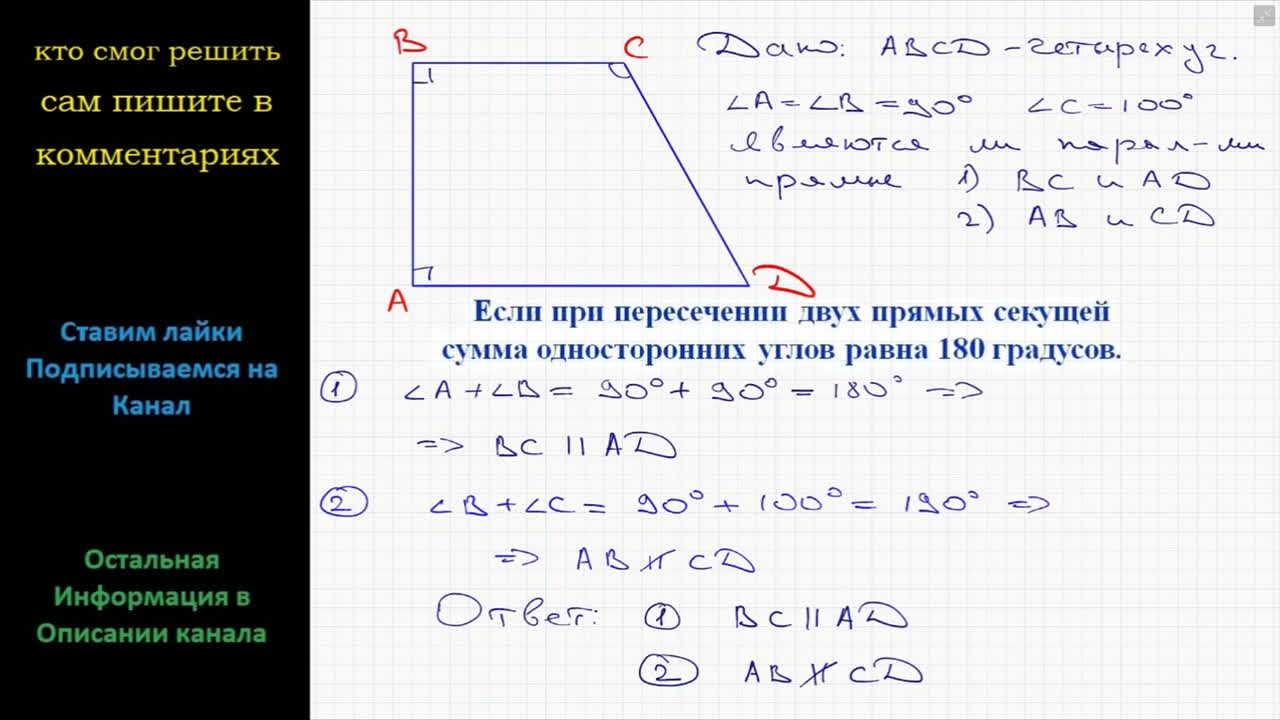 кто смог решить
сам пишите в
комментариях
Ставим лайки
Подписываемся на
Канал
Остальная
Информация в
Описании канала
B
C
A
D
Дано: ABCD - четырехуг.
∠A = ∠B = 90° ∠C = 100°
являются ли парал-ми
прямые 1) BC и AD
2) AB и CD
Если при пересечении двух прямых секущей
сумма односторонних углов равна 180 градусов.
① ∠A + ∠B = 90° + 90° = 180° =>
=> BC || AD
② ∠B + ∠C = 90° + 100° = 190° =>
=> AB ∦ CD
Ответ: ① BC || AD
② AB ∦ CD